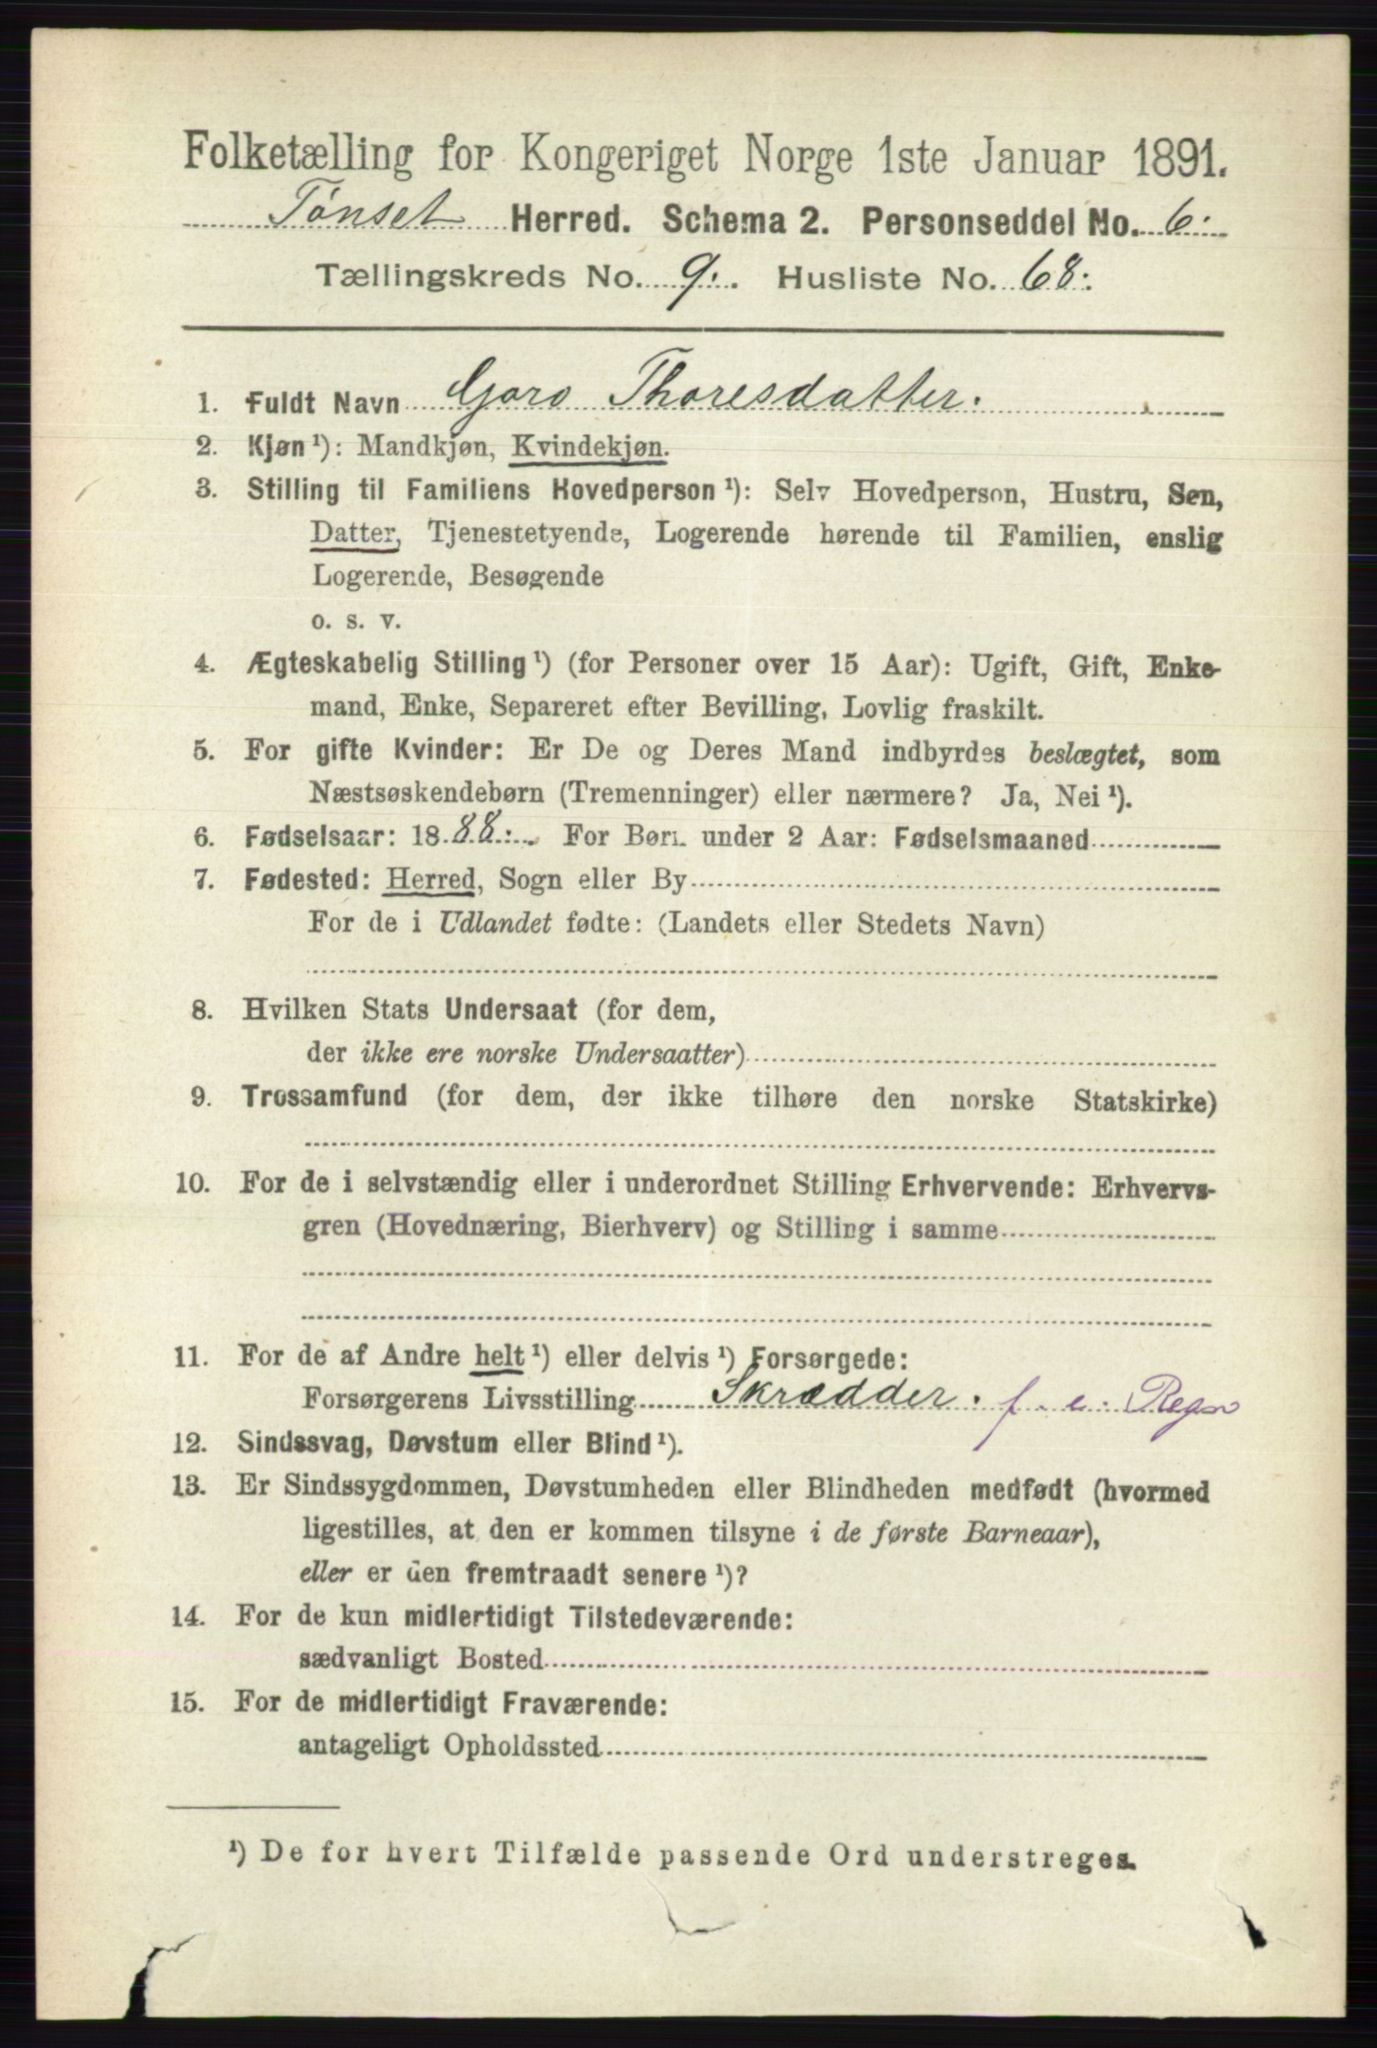 Folketælling for Kongeriget Norge 1ste Januar 1891.
Tønset Herred. Schema 2. Personseddel No. 6.
Tællingskreds No. 9. Husliste No. 68.
1. Fuldt Navn Goro Thoresdatter.
2. Kjøn ¹): Mandkjøn, Kvindekjøn.
3. Stilling til Familiens Hovedperson ¹): Selv Hovedperson, Hustru, Søn,
Datter, Tjenestetyende, Logerende hørende til Familien, enslig
Logerende, Besøgende
o. s. v.
4. Ægteskabelig Stilling ¹) (for Personer over 15 Aar): Ugift, Gift, Enke-
mand, Enke, Separeret efter Bevilling, Lovlig fraskilt.
5. For gifte Kvinder: Er De og Deres Mand indbyrdes beslægtet, som
Næstsøskendebørn (Tremenninger) eller nærmere? Ja, Nei ¹).
6. Fødselsaar: 1888. For Børn under 2 Aar: Fødselsmaaned
7. Fødested: Herred, Sogn eller By
For de i Udlandet fødte: (Landets eller Stedets Navn)
8. Hvilken Stats Undersaat (for dem,
der ikke ere norske Undersaatter)
9. Trossamfund (for dem, der ikke tilhøre den norske Statskirke)
10. For de i selvstændig eller i underordnet Stilling Erhvervende: Erhvervs-
gren (Hovednæring, Bierhverv) og Stilling i samme
11. For de af Andre helt ¹) eller delvis ¹) Forsørgede:
Forsørgerens Livsstilling Skrædder. f. e. Regn
12. Sindssvag, Døvstum eller Blind ¹).
13. Er Sindssygdommen, Døvstumheden eller Blindheden medfødt (hvormed
ligestilles, at den er kommen tilsyne i de første Barneaar),
eller er den fremtraadt senere ¹)?
14. For de kun midlertidigt Tilstedeværende:
sædvanligt Bosted
15. For de midlertidigt Fraværende:
antageligt Opholdssted
¹) De for hvert Tilfælde passende Ord understreges.